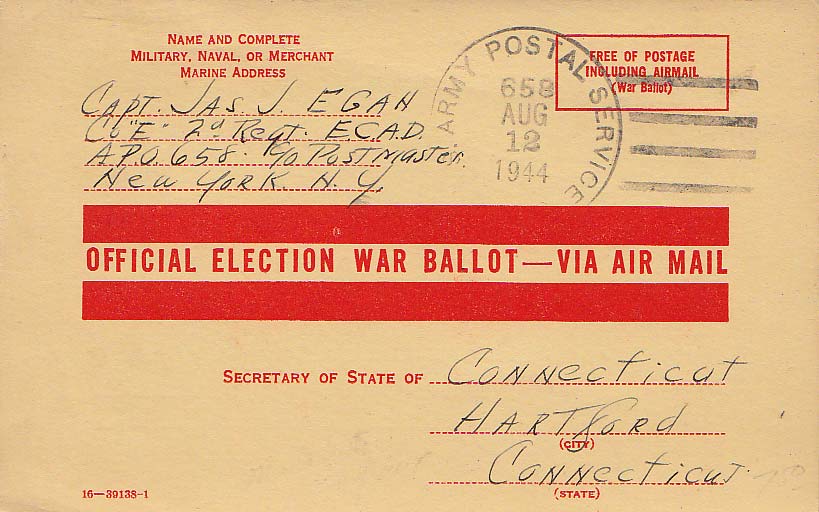 NAME AND COMPLETE
MILITARY, NAVAL, OR MERCHANT
MARINE ADDRESS
CAPT. JAS. J. EGAN
Co "E" 2d Regt. E.C.A.D.
A.P.O. 658. % Postmaster.
New York. N.Y.
ARMY POSTAL SERVICE
658
AUG
12
1944
FREE OF POSTAGE
INCLUDING AIRMAIL
(War Ballot)
OFFICIAL ELECTION WAR BALLOT—VIA AIR MAIL
SECRETARY OF STATE OF Connecticut
HARTford
(CITY)
Connecticut
(STATE)
16—39138-1